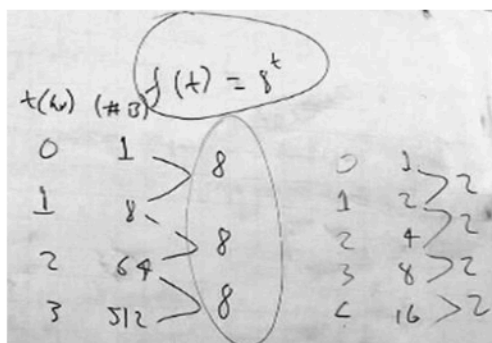 f(t) = 8^t
t(hr) (#B)
0 1
8
1 8
8
2 64
8
3 512
0 1
2
1 2
2
2 4
2
3 8
2
16